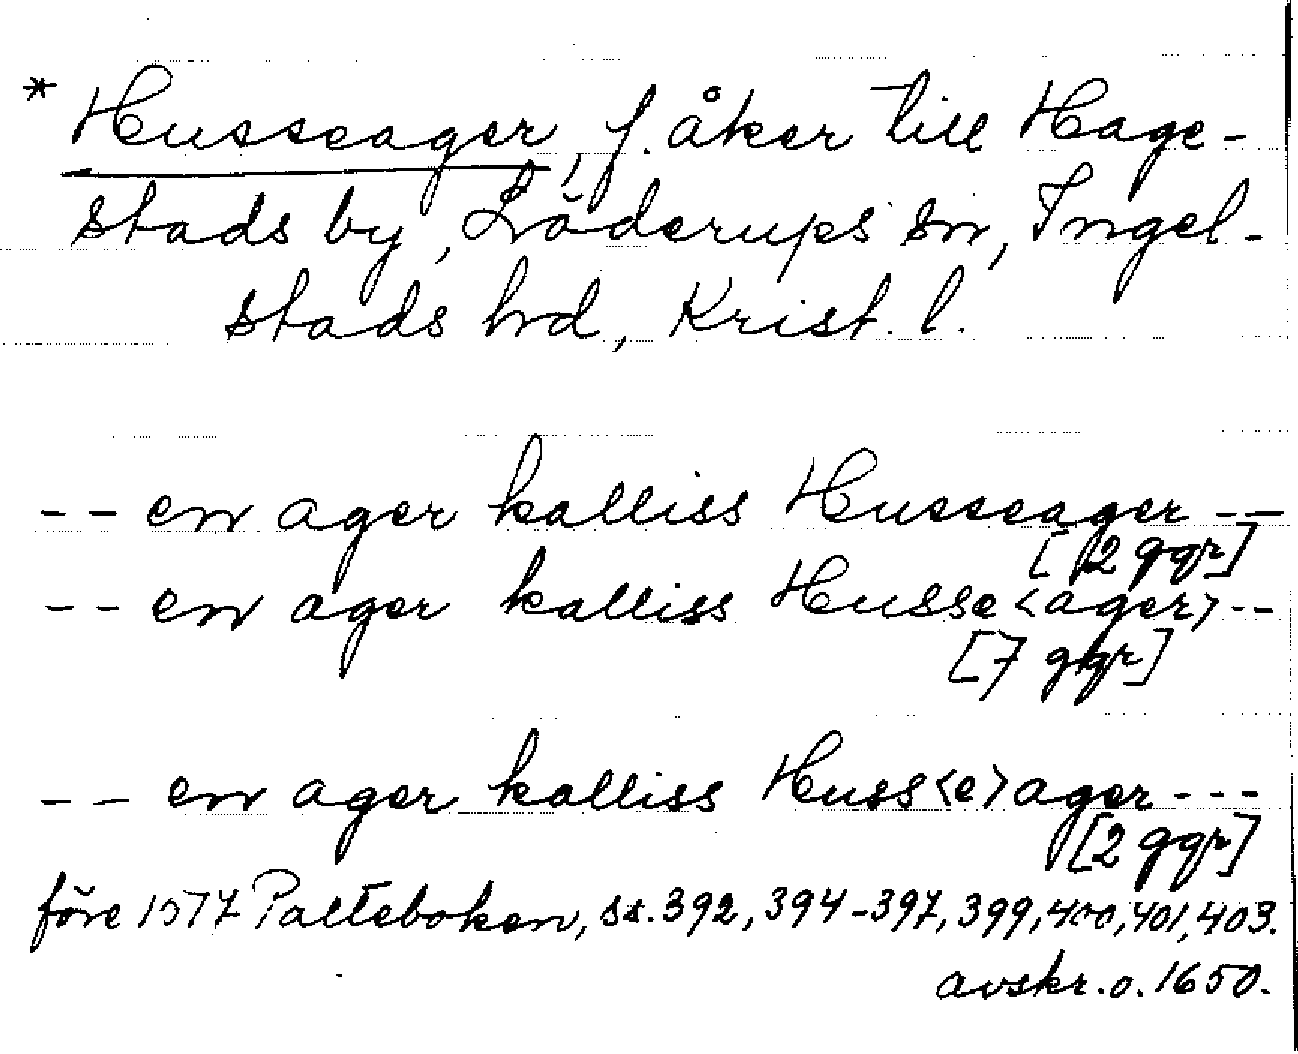 * Husseager, f. åker till Hage-
stads by, Löderups sn, Ingel-
stads hrd, Krist. l.
-- en ager kalliss Husseager --
[2 ggr]
-- en ager kalliss Husse<ager> --
[7 ggr]
-- en ager kalliss Huss<e>ager ---
[2 ggr]
före 1577 Palteboken, s. 392, 394-397, 399, 400, 401, 403.
avskr. o. 1650.